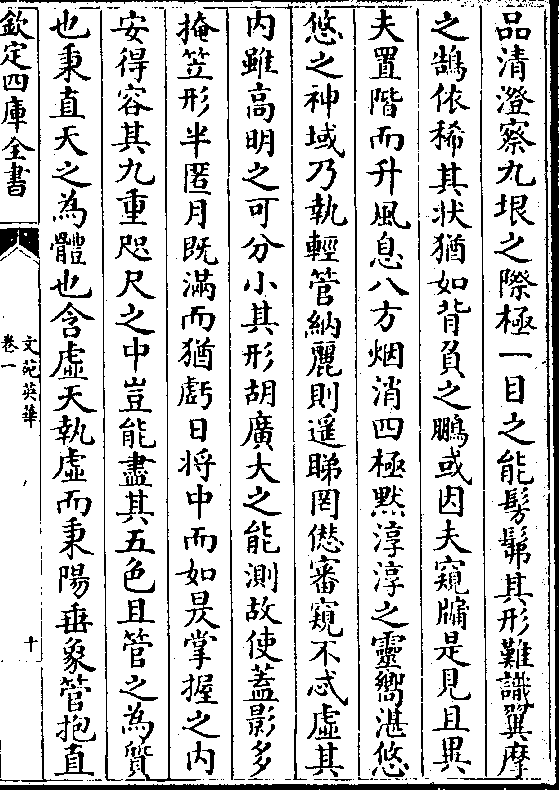 品清澄察九垠之際極一目之能髣髴其形難識翼摩
之鵠依稀其狀猶如背負之鵬或因夫窺牖是見且異
夫置階而升風息八方烟消四極黙淳淳之靈嚮湛悠
悠之神域乃執輕管納麗則遥睇罔僁審窺不忒虛其
内雖高明之可分小其形胡廣大之能測故使蓋影多
掩笠形半匿月既滿而猶虧日将中而如昃掌握之内
安得容其九重咫尺之中豈能盡其五色且管之為質
也秉直天之為體也含虛天執虛而秉陽垂象管抱直
欽定四庫全書
文苑英華
卷一
十